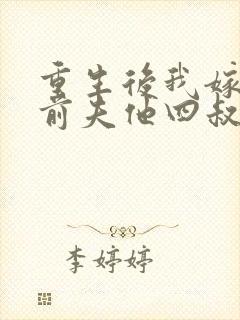 重生后我嫁
前夫他四叔
李婷婷